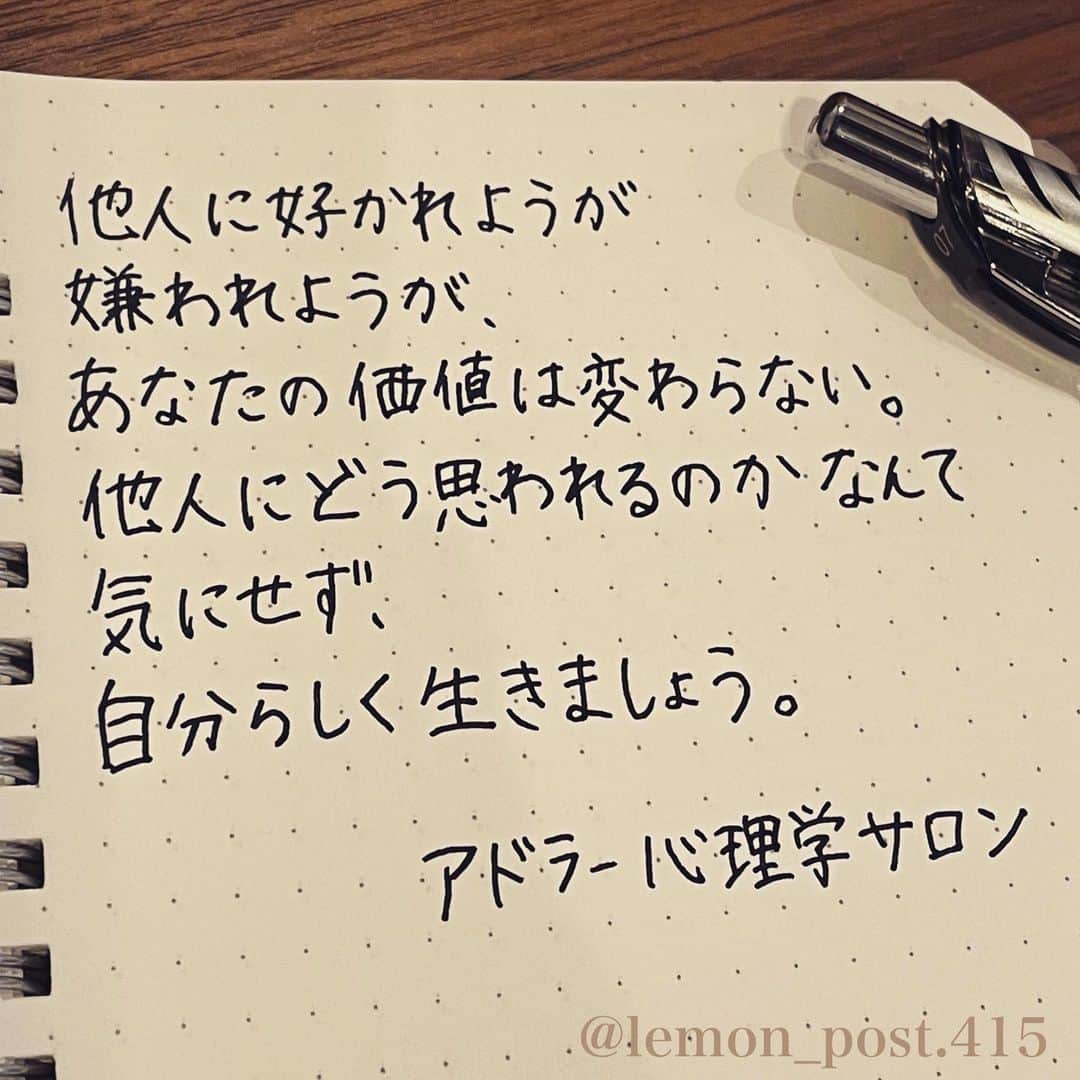 他人に好かれようが
嫌われようが、
あなたの価値は変わらない。
他人にどう思われるのかなんて
気にせず、
自分らしく生きましょう。
アドラー心理学サロン
07
@lemon_post.415